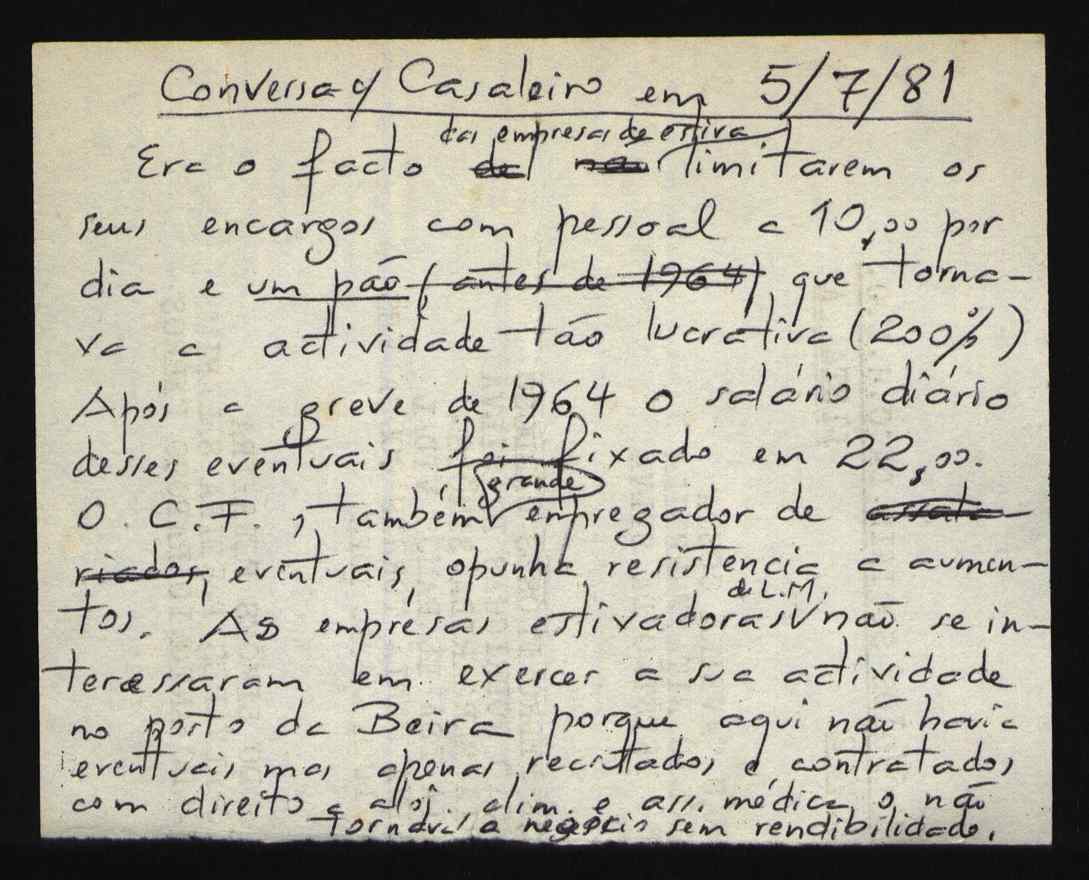 Conversa c/ Casaleiro em 5/7/81
das empresas de estiva
Era o facto de na limitarem os
seus encargos com pessoal a 10,00 por
dia e um pão (antes de 1964) que torna-
va a actividade tão lucrativa (200%)
Após a greve de 1964 o salário diário
desses eventuais foi fixado em 22,00.
grande
O. C.F., também empregador de assala-
riados, eventuais, opunha resistencia a aumen-
de L.M.
tos. As empresas estivadoras não se in-
teressaram em exercer a sua actividade
no porto da Beira porque aqui não havia
eventuais mas apenas recrutados e contratados
com direito a aloj. alim. e ass. médica, o não
tornava a negócio sem rendibilidade.